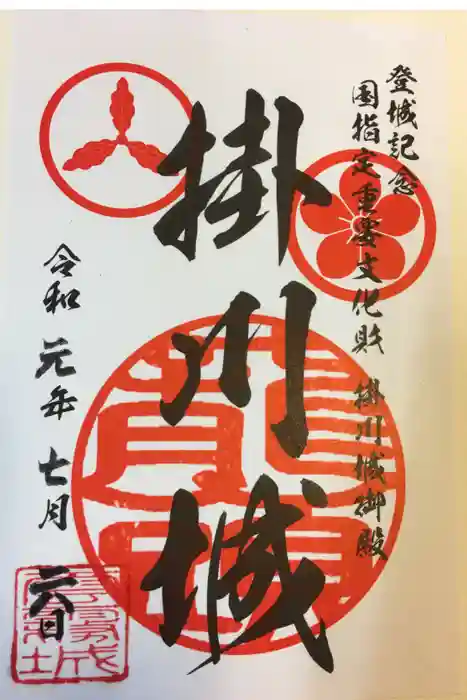 登城記念
国指定重要文化財 掛川城御殿
掛川城
令和元年七月六日